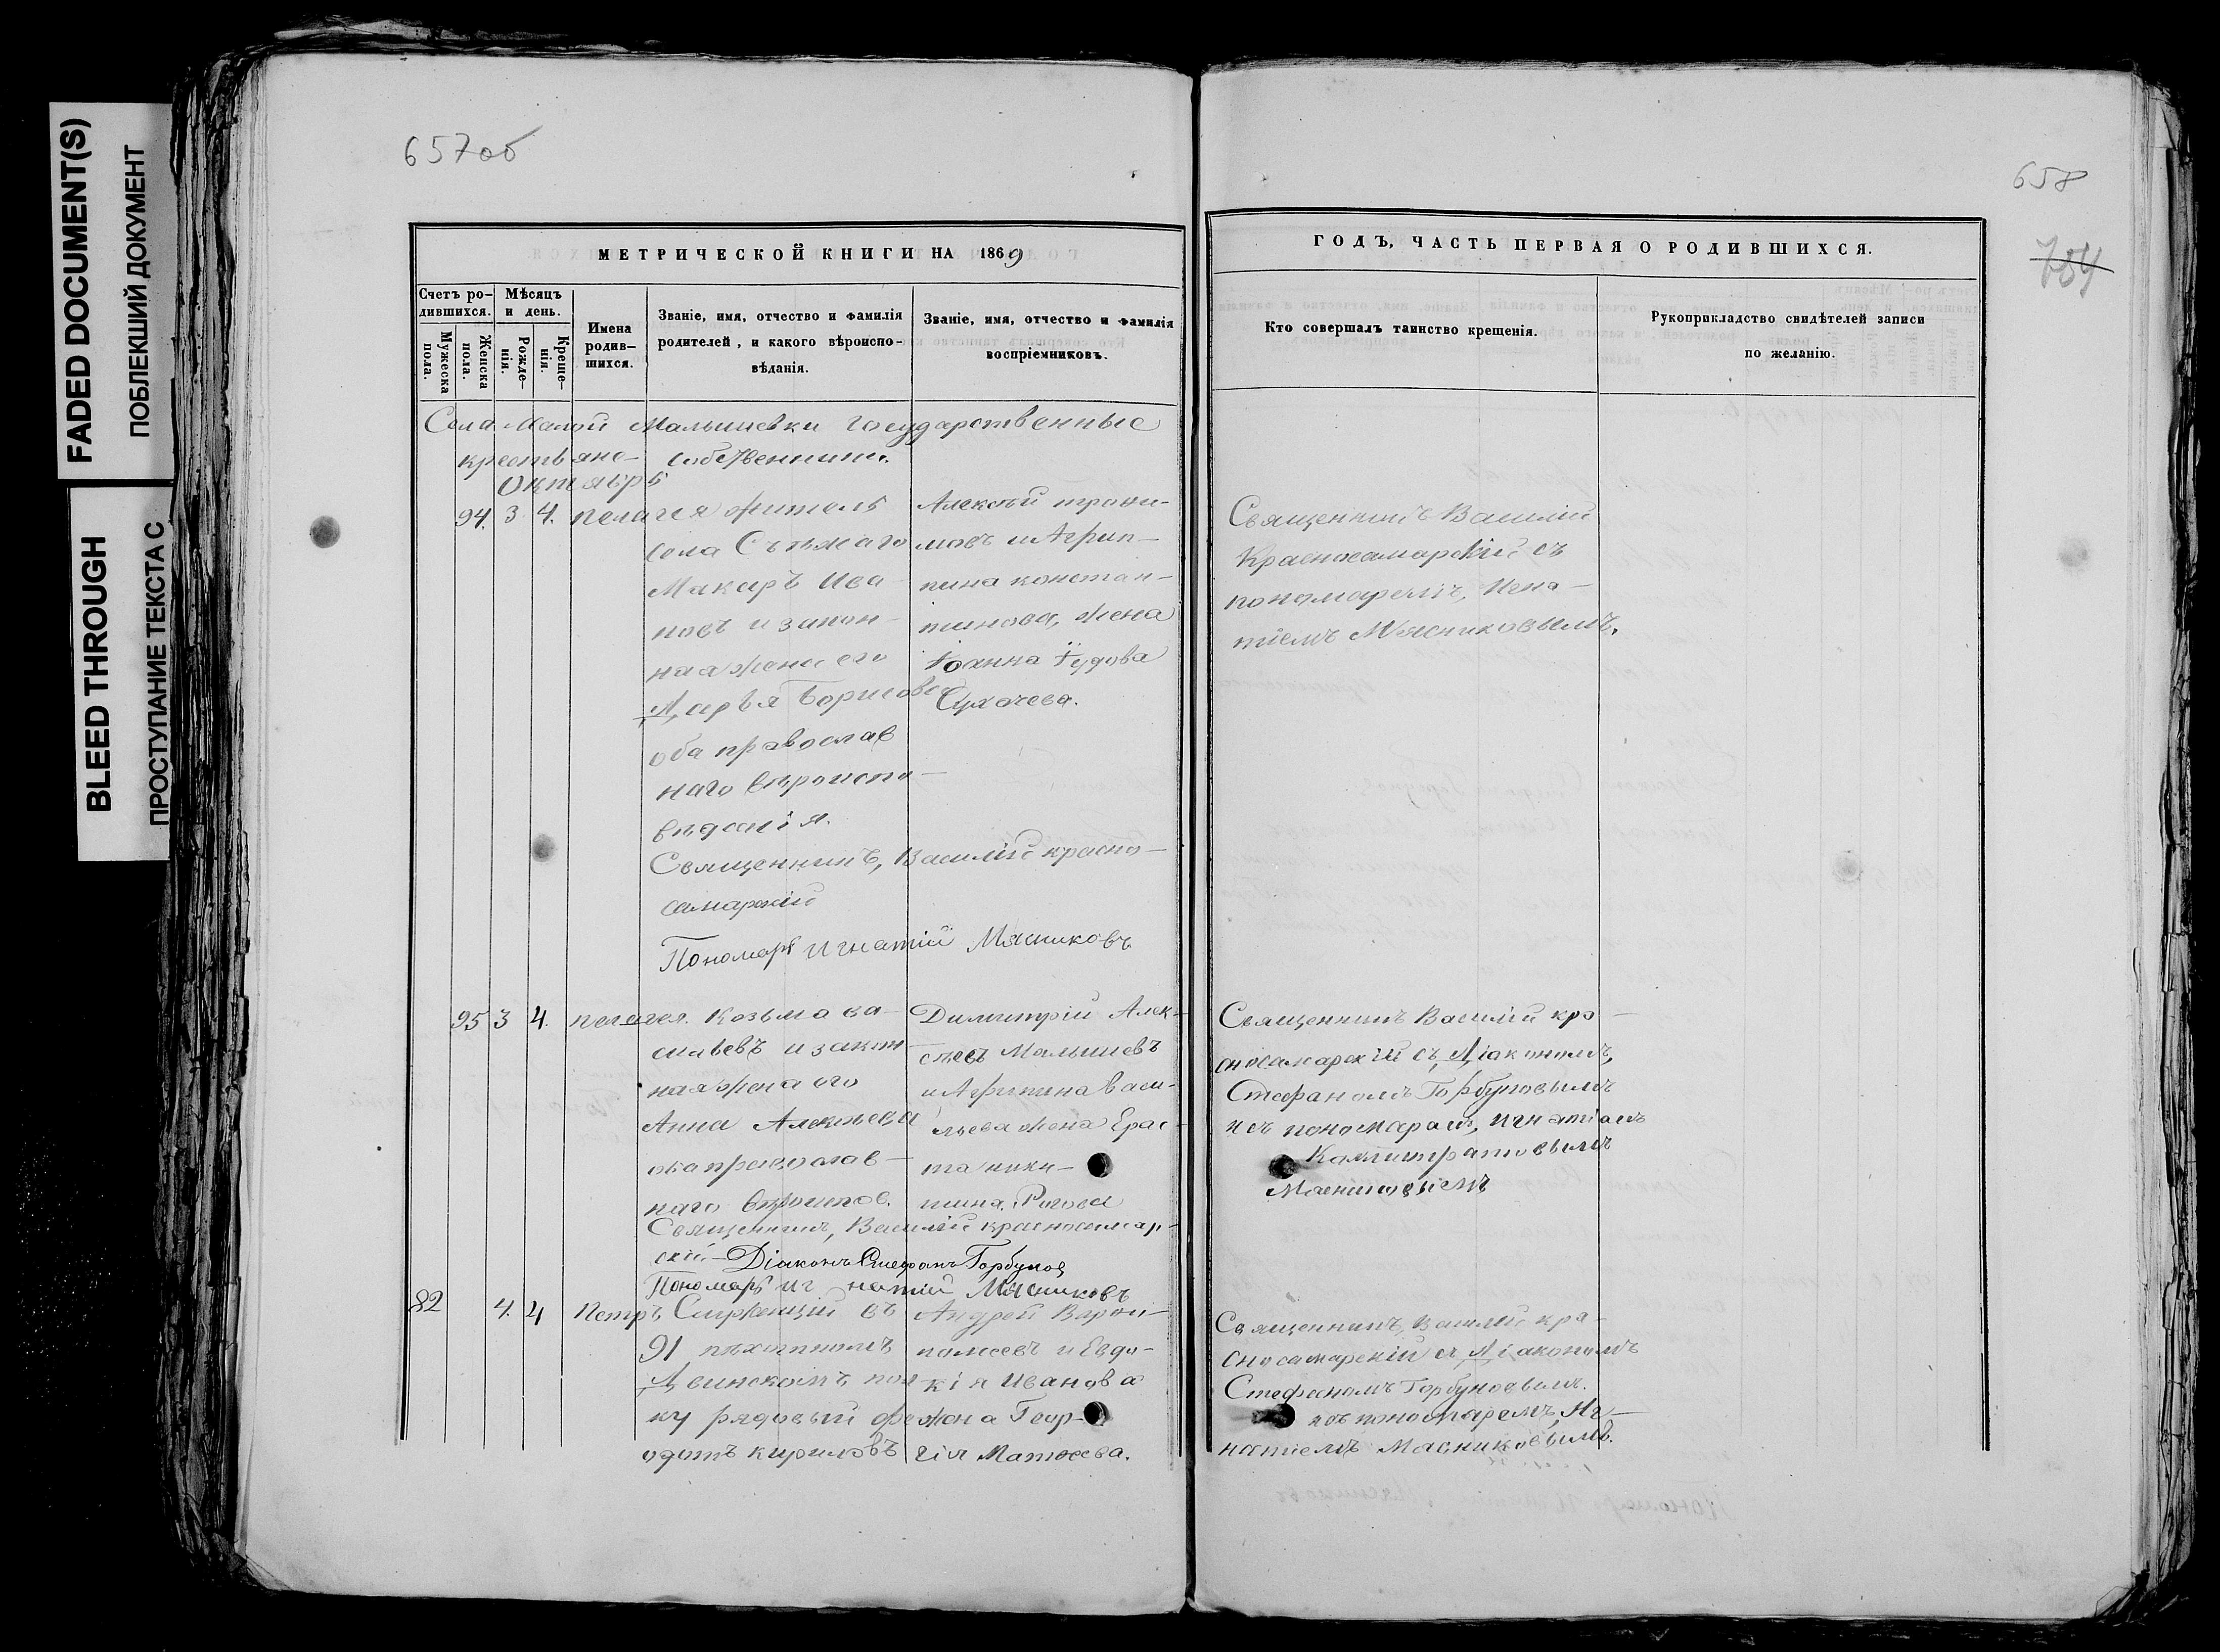 FADED DOCUMENT(S)
ПОБЛЕКШИЙ ДОКУМЕНТ
BLEED THROUGH
ПРОСТУПАНИЕ ТЕКСТА С
657об
МЕТРИЧЕСКОЙ КНИГИ НА 1869
Счетъ ро-
дившихся.
Мѣсяцъ
и день.
Мужеска
пола.
Женска
пола.
Рожде-
нія.
Креще-
нія.
Имена
родив-
шихся.
Званіе, имя, отчество и фамилія
родителей, и какого вѣроиспо-
вѣданія.
Званіе, имя, отчество и фамилія
воспріемниковъ.
Села Малой Малышевки государственные
крестьяне-собственники.
Октябрь
94. 3 4. Пелагея
житель
села Съѣзжаго
Макаръ Ива-
новъ и закон-
ная жена его
Дарья Борисова
оба православ
наго вѣроиспо-
вѣданія.
Алексѣй трофи-
мовъ и Агрип-
пина констан-
тинова, жена
Іоанна Іудова
Сухочева.
Священникъ, Василій красно-
самарскій
Пономарь Игнатій Мясниковъ
95 3 4. пелагея.
Козьма ва-
сильевъ и закон
ная жена его
Анна Алексѣева
оба православ-
наго вѣроиспов.
Димитрій Алек-
сѣевъ Малышевъ
и Агрипина васи-
льева жена Ерас-
та ники-
тина, Рогова
Священникъ, Василій красносамар-
скій - Діаконъ Стефанъ Горбуновъ
Пономарь Игнатій Мясниковъ
82 4. 4 Петръ
Служащій въ
91 пѣхотномъ
Двинскомъ пол
ку рядовый Фе
одотъ кириловъ
Андрей Варфо-
ломеевъ и Евдо-
кія Иванова
жена Геор-
гія Матвеева.
658
784
ГОДЪ, ЧАСТЬ ПЕРВАЯ О РОДИВШИХСЯ.
Кто совершалъ таинство крещенія.
Рукоприкладство свидѣтелей записи
по желанію.
Священникъ Василій
Красносамарскій съ
пономаремъ, Игна-
тіемъ Мясниковымъ.
Священникъ Василій кра-
сносамарскій съ Діакономъ,
Стефаномъ Горбуновымъ
и съ пономаремъ, Игнатіемъ
Каллистратовымъ
Мясниковымъ
Священникъ, Василій кра-
сносамарскій съ Діакономъ
Стефаномъ Горбуновымъ.
и съ пономаремъ, Иг-
натіемъ Мясниковымъ.